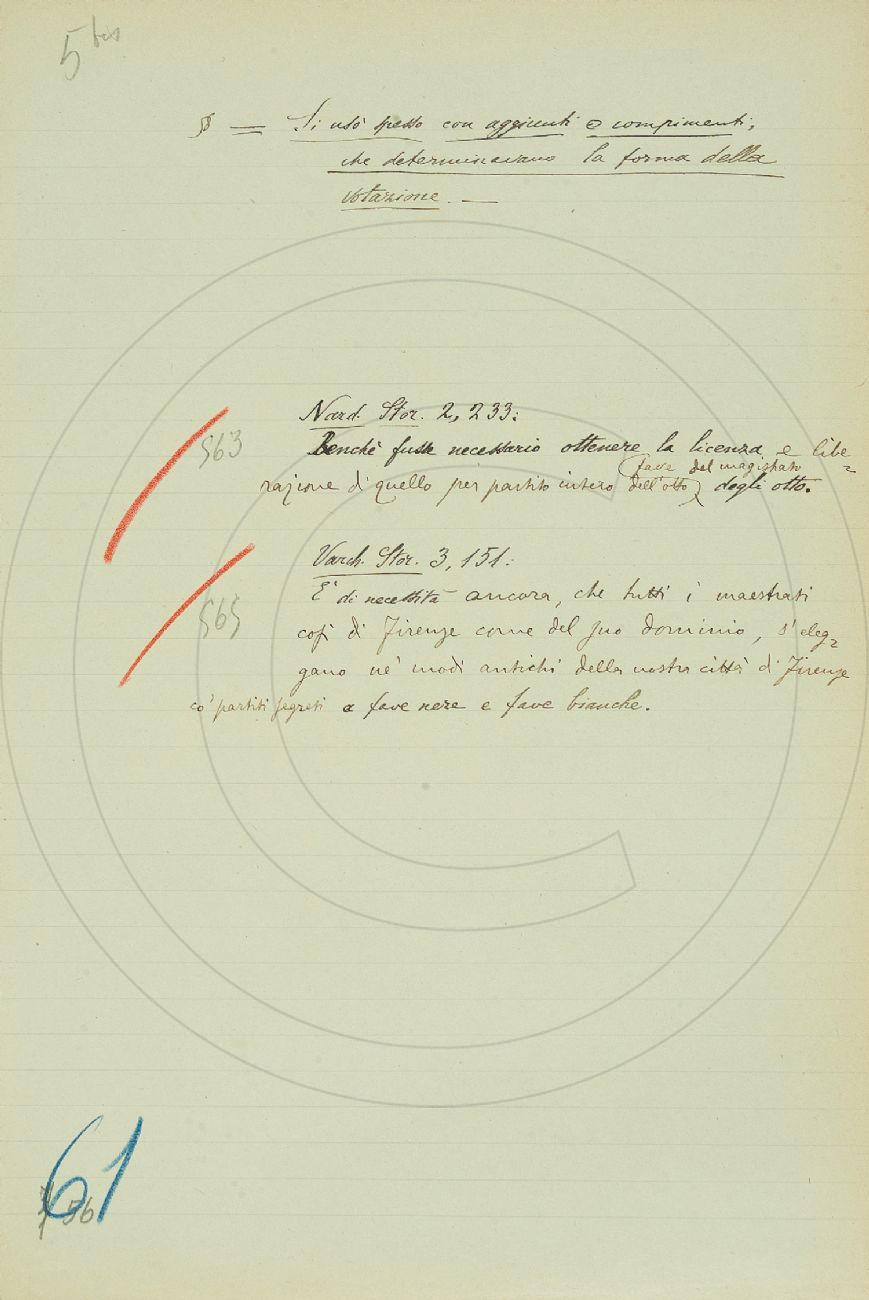 5 bis
§ = Si usò spesso con aggiunti e compimenti,
che determinavano la forma della
votazione. —
Nard. Stor. 2, 233:
563
Benchè fusse necessario ottenere la licenza e libe=
(fave del magistrato
razione di quello per partito intero dell'otto) degli otto.
Varch. Stor. 3, 151:
565
E' di necessità ancora, che tutti i maestrati
così di Firenze come del suo dominio, s'eleg=
gano ne' modi antichi della nostra città di Firenze
co' partiti segreti a fave nere e fave bianche.
61
56